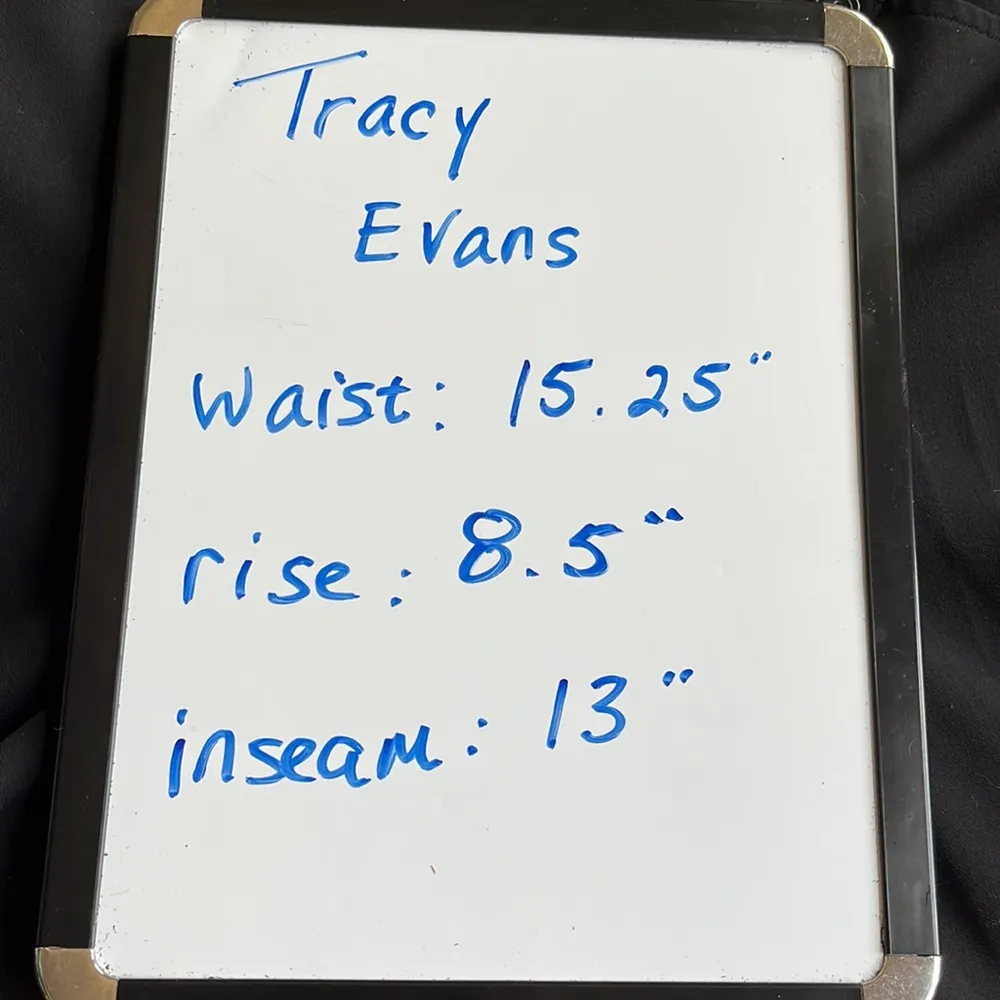 Tracy
Evans
Waist: 15.25"
rise: 8.5"
inseam: 13"